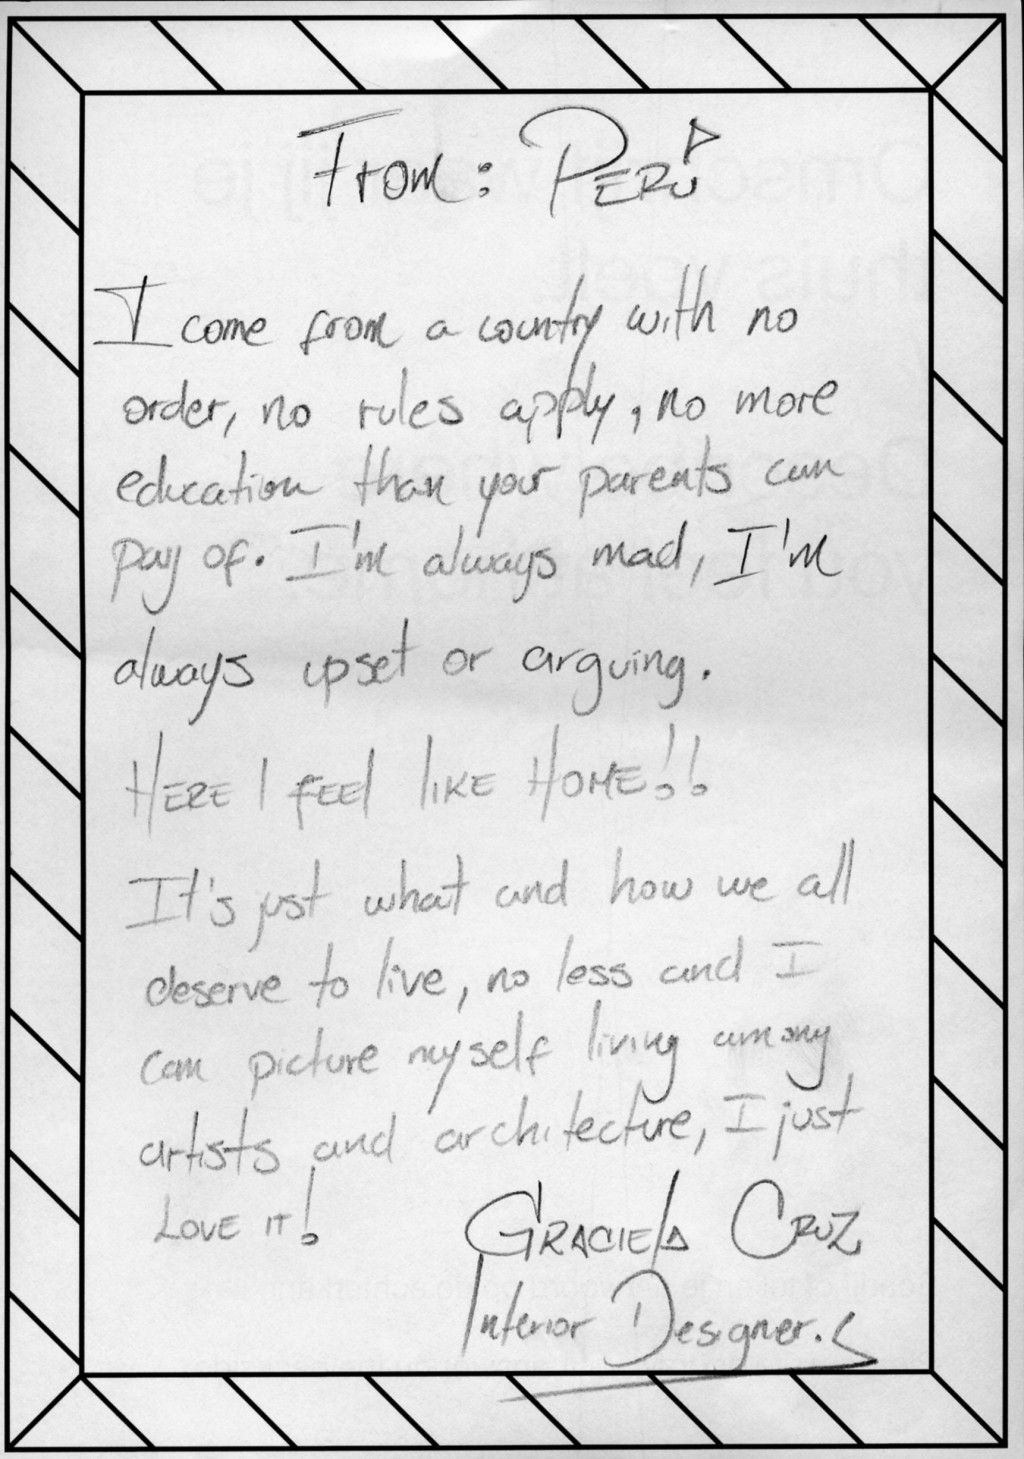 From: PERÚ
I come from a country with no
order, no rules apply, no more
education than your parents can
pay of. I'm always mad, I'm
always upset or arguing.
HERE I FEEL LIKE HOME!!
It's just what and how we all
deserve to live, no less and I
can picture myself living among
artists and architecture, I just
LOVE IT!
GRACIELA CRUZ
Interior Designer.